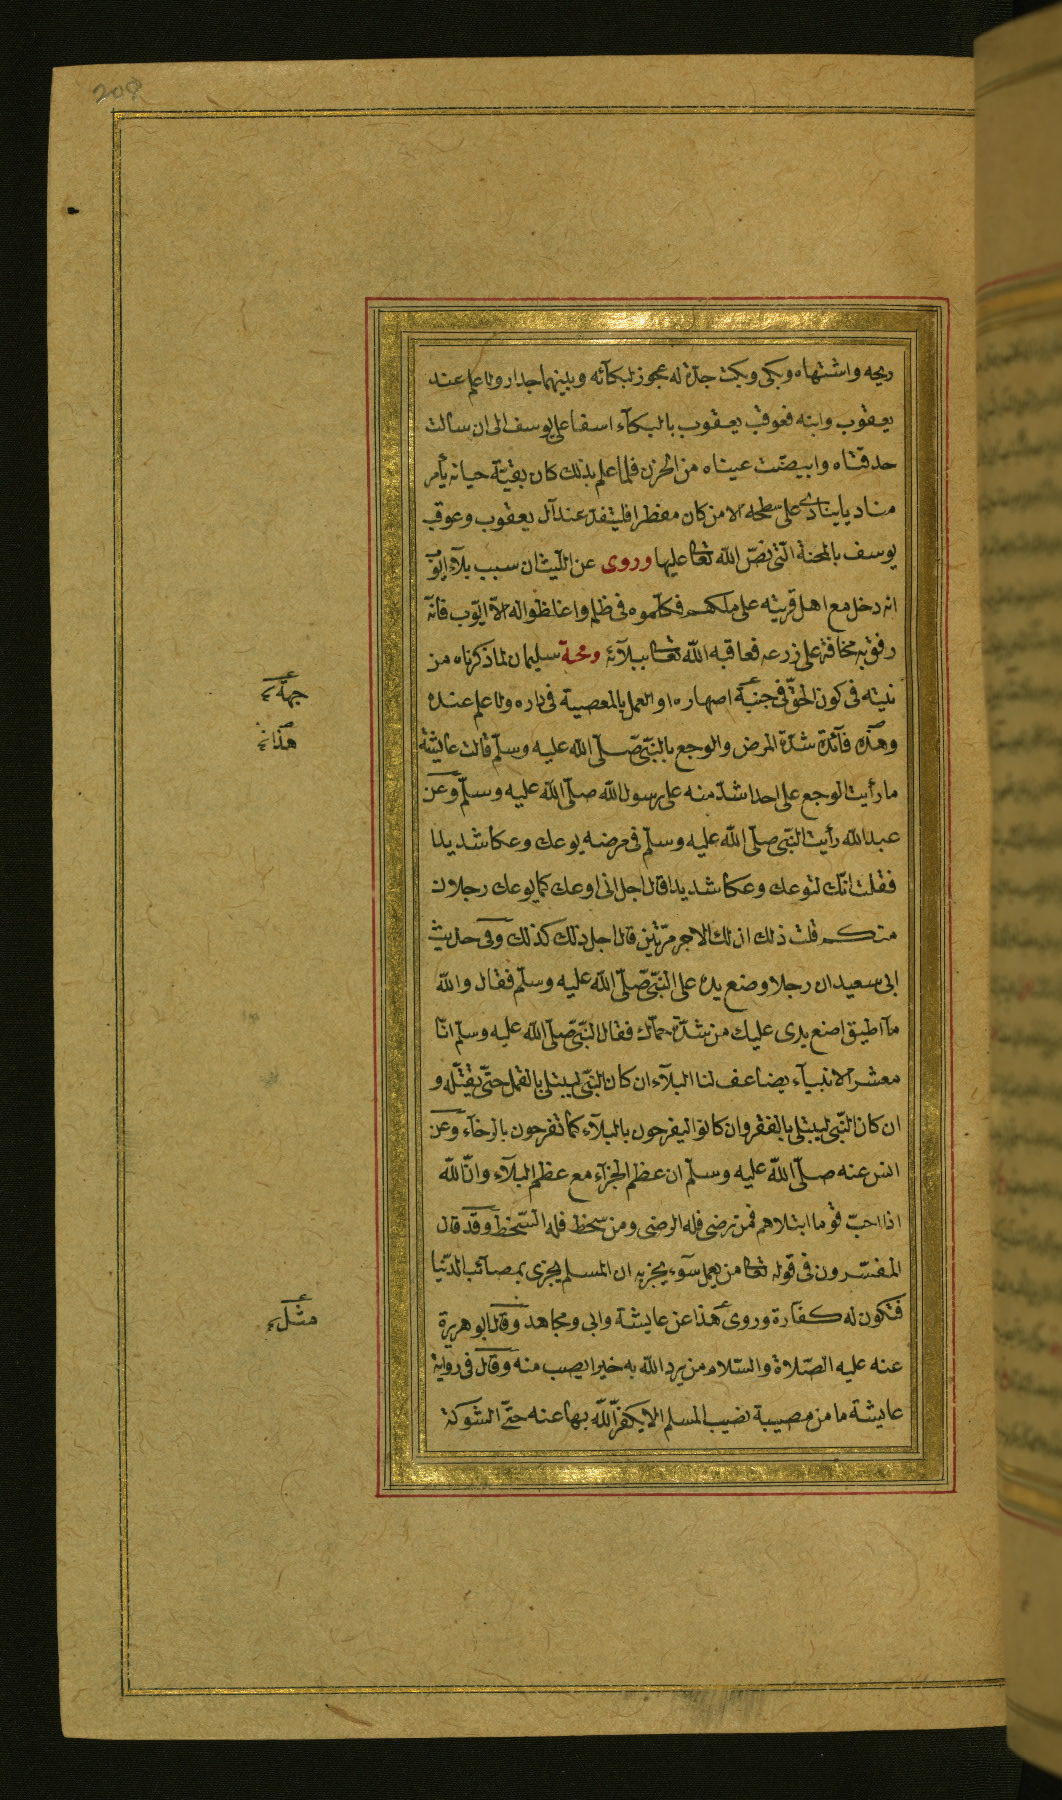 208
ريحه واشتهاه وبكى وبكت جدة له عجوز لبكآئه وبينهما جدار ولا علم عند
يعقوب وابنه فعوقب يعقوب بالبكآء اسفا على يوسف الى ان سالت
حدقتاه وابيضّت عيناه من الحزن فلما علم بذلك كان بقيّة حياته يأمر
مناديا ينادى على سطحه الا من كان مفطرا فليتغدّ عند آل يعقوب وعوقب
يوسف بالمحنة الّتى نصّ الله تعالى عليها وروى عن اللّيث ان سبب بلآء ايّوب
انه دخل مع اهل قريته على ملكهم فكلّموه فى ظلمه واغلظوا له الّا ايّوب فانّه
رفق به مخافة على زرعه فعاقبه الله تعالى ببلآئه ومحنة سليمان لما ذكرناه من
نيته فى كون الحقّ فى جنبة اصهاره او العمل بالمعصية فى داره ولا علم عنده
وهذه فآئدة شدّة المرض والوجع بالنّبىّ صلّى الله عليه وسلّم قالت عايشة
ما رأيت الوجع على احد اشدّ منه على رسول الله صلّى الله عليه وسلّم وعن
عبد الله رأيت النّبى صلّى الله عليه وسلّم فى مرضه يوعك وعكا شديدا
فقلت انّك لتوعك وعكا شديدا قال اجل انى اوعك كما يوعك رجلان
منكم قلت ذلك ان لك الاجر مرّتين قال اجل ذلك كذلك وفى حديث
ابى سعيد ان رجلا وضع يده على النّبىّ صلّى الله عليه وسلّم فقال والله
ما اطيق اضع يدى عليك من شدّة حمّاك فقال النّبىّ صلّى الله عليه وسلّم انّا
معشر الانبيآء يضاعف لنا البلآء ان كان النّبىّ ليبتلى بالقمل حتّى يقتله و
ان كان النّبى ليبتلى بالفقر وان كانوا ليفرحون بالبلآء كما تفرحون بالرخآء وعن
انس عنه صلّى الله عليه وسلّم ان عظم الجزآء مع عظم البلآء وانّ الله
اذا احبّ قوما ابتلاهم فمن رضى فله الرضى ومن سخط فله السّخط وقد قال
المفسّرون فى قوله تعالى من يعمل سوء يجز به ان المسلم يجزى بمصآئب الدّنيا
فتكون له كفّارة وروى هذا عن عايشة وابى ومجاهد وقال ابو هريرة
عنه عليه الصّلاة والسّلام من يرد الله به خيرا يصب منه وقال فى رواية
عايشة ما من مصيبة تصيب المسلم الا يكفر الله بها عنه حتّى الشوكة
جهة
هذا
مثل